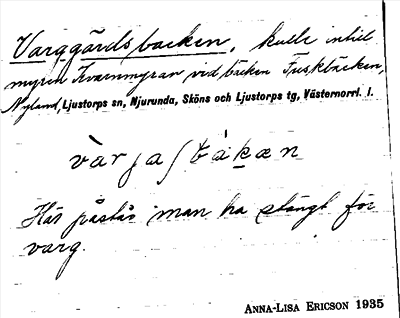 Varggårdsbacken, kulle intill
myren Kvarnmyran vid bäcken Fuskbäcken,
Nyland, Ljustorps sn, Njurunda, Sköns och Ljustorps tg, Västernorrl. l.
Här påstås man ha stängt för
varg.
ANNA-LISA ERICSON 1935